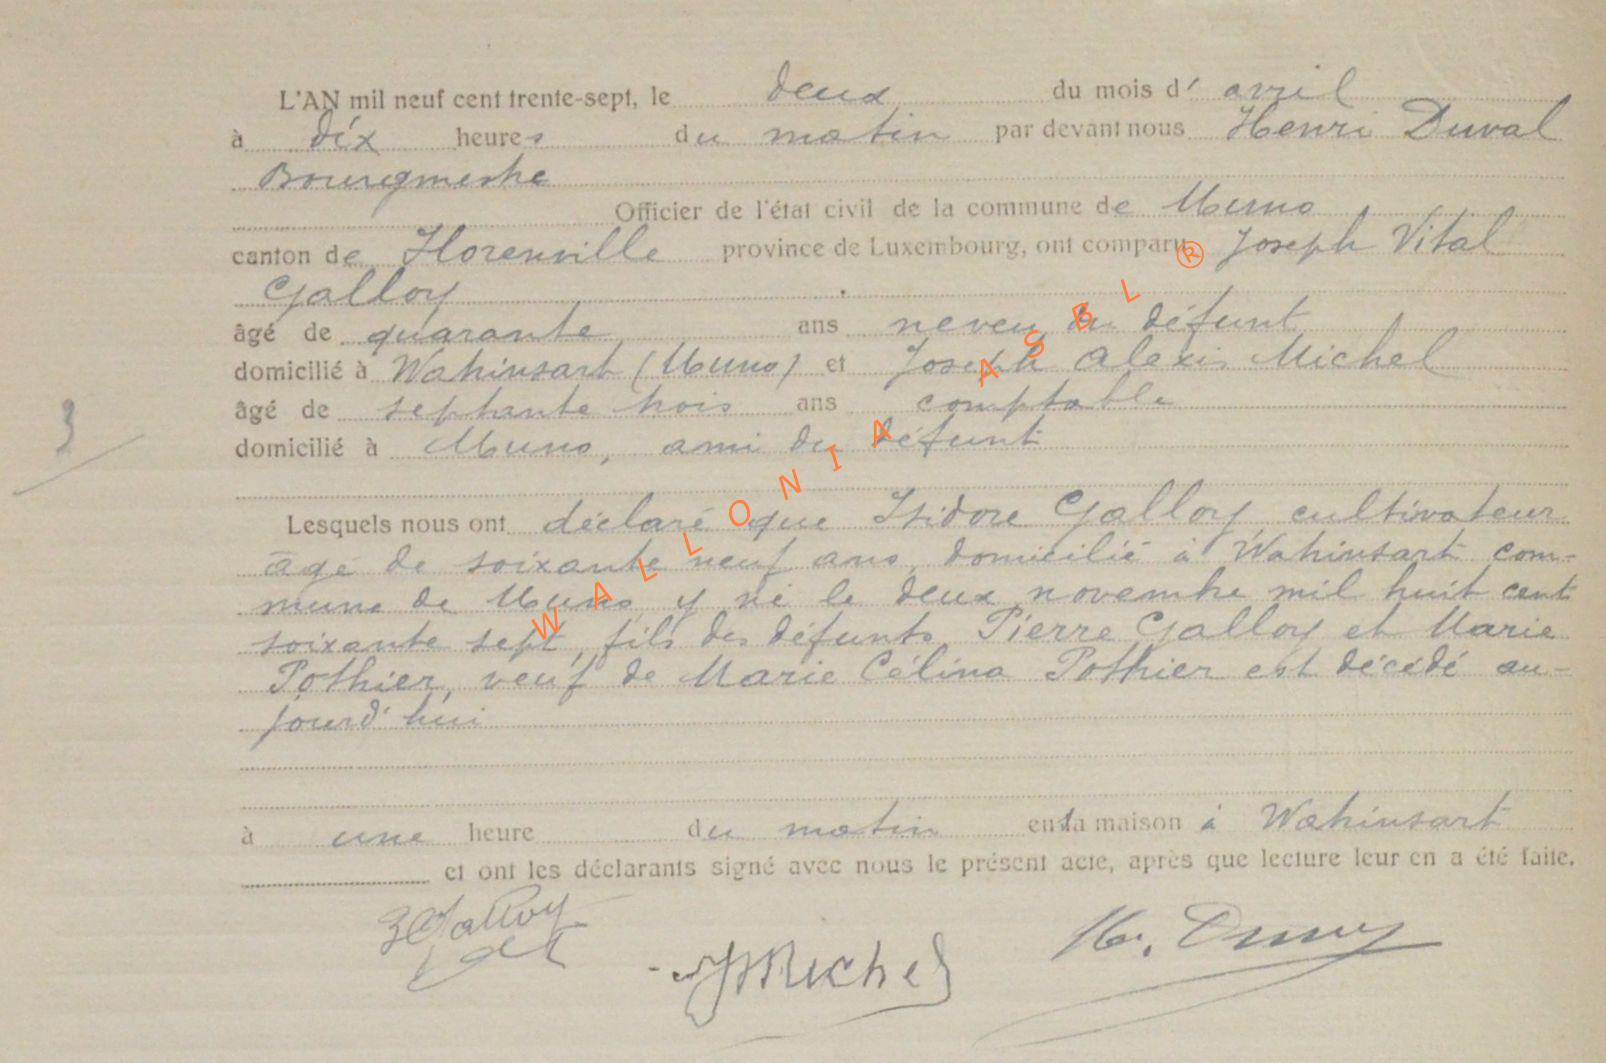 L'AN mil neuf cent trente-sept, le deux du mois d' avril
à dix heures du matin par devant nous Henri Duval
Bourgmestre
Officier de l'état civil de la commune de Muno
canton de Florenville province de Luxembourg, ont comparu Joseph Vital
Galloy
âgé de quarante ans neveu du défunt
domicilié à Wahinsart (Muno) et Joseph Alexis Michel
âgé de septante trois ans comptable
domicilié à Muno, ami du défunt
3
Lesquels nous ont déclaré que Isidore Galloy cultivateur
âgé de soixante neuf ans, domicilié à Wahinsart com-
mune de Muno y né le deux novembre mil huit cent
soixante sept, fils des défunts Pierre Galloy et Marie
Pothier, veuf de Marie Célina Pothier est décédé au-
jourd'hui
à une heure du matin en sa maison à Wahinsart
et ont les déclarants signé avec nous le présent acte, après que lecture leur en a été faite.
Galloy
JMichel
H. Duval
WALLONIA ASBL ®